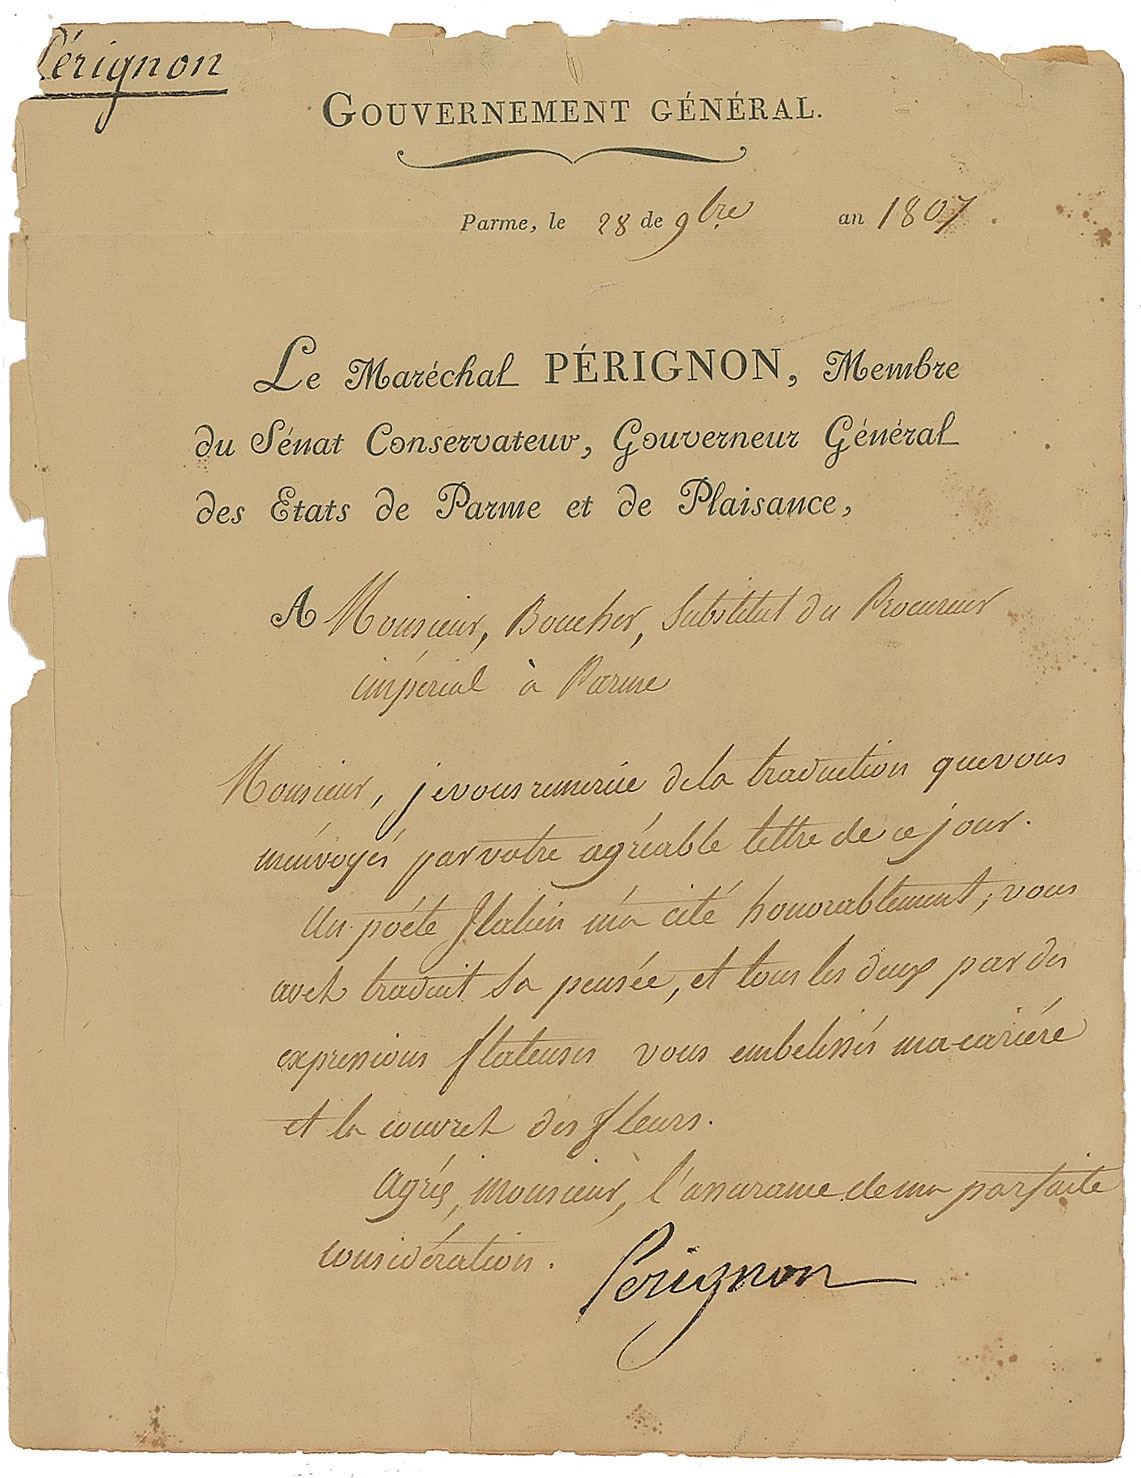 Pérignon
GOUVERNEMENT GÉNÉRAL.
Parme, le 28 de 9bre an 1807.
Le Maréchal PÉRIGNON, Membre
du Sénat Conservateur, Gouverneur Général
des Etats de Parme et de Plaisance,
A Monsieur, Boucher, Substitut du Procureur
impérial à Parme
Monsieur, je vous remercie de la traduction que vous
m'envoyés par votre agréable lettre de ce jour.
Un poéte Italien m'a cité honorablement; vous
avet traduit sa pensée, et tous les deux par des
expressions flateuses vous embelissés ma cariére
et la couvret des fleurs.
agrés, Monsieur, l'assurance de ma parfaite
considération.
Pérignon